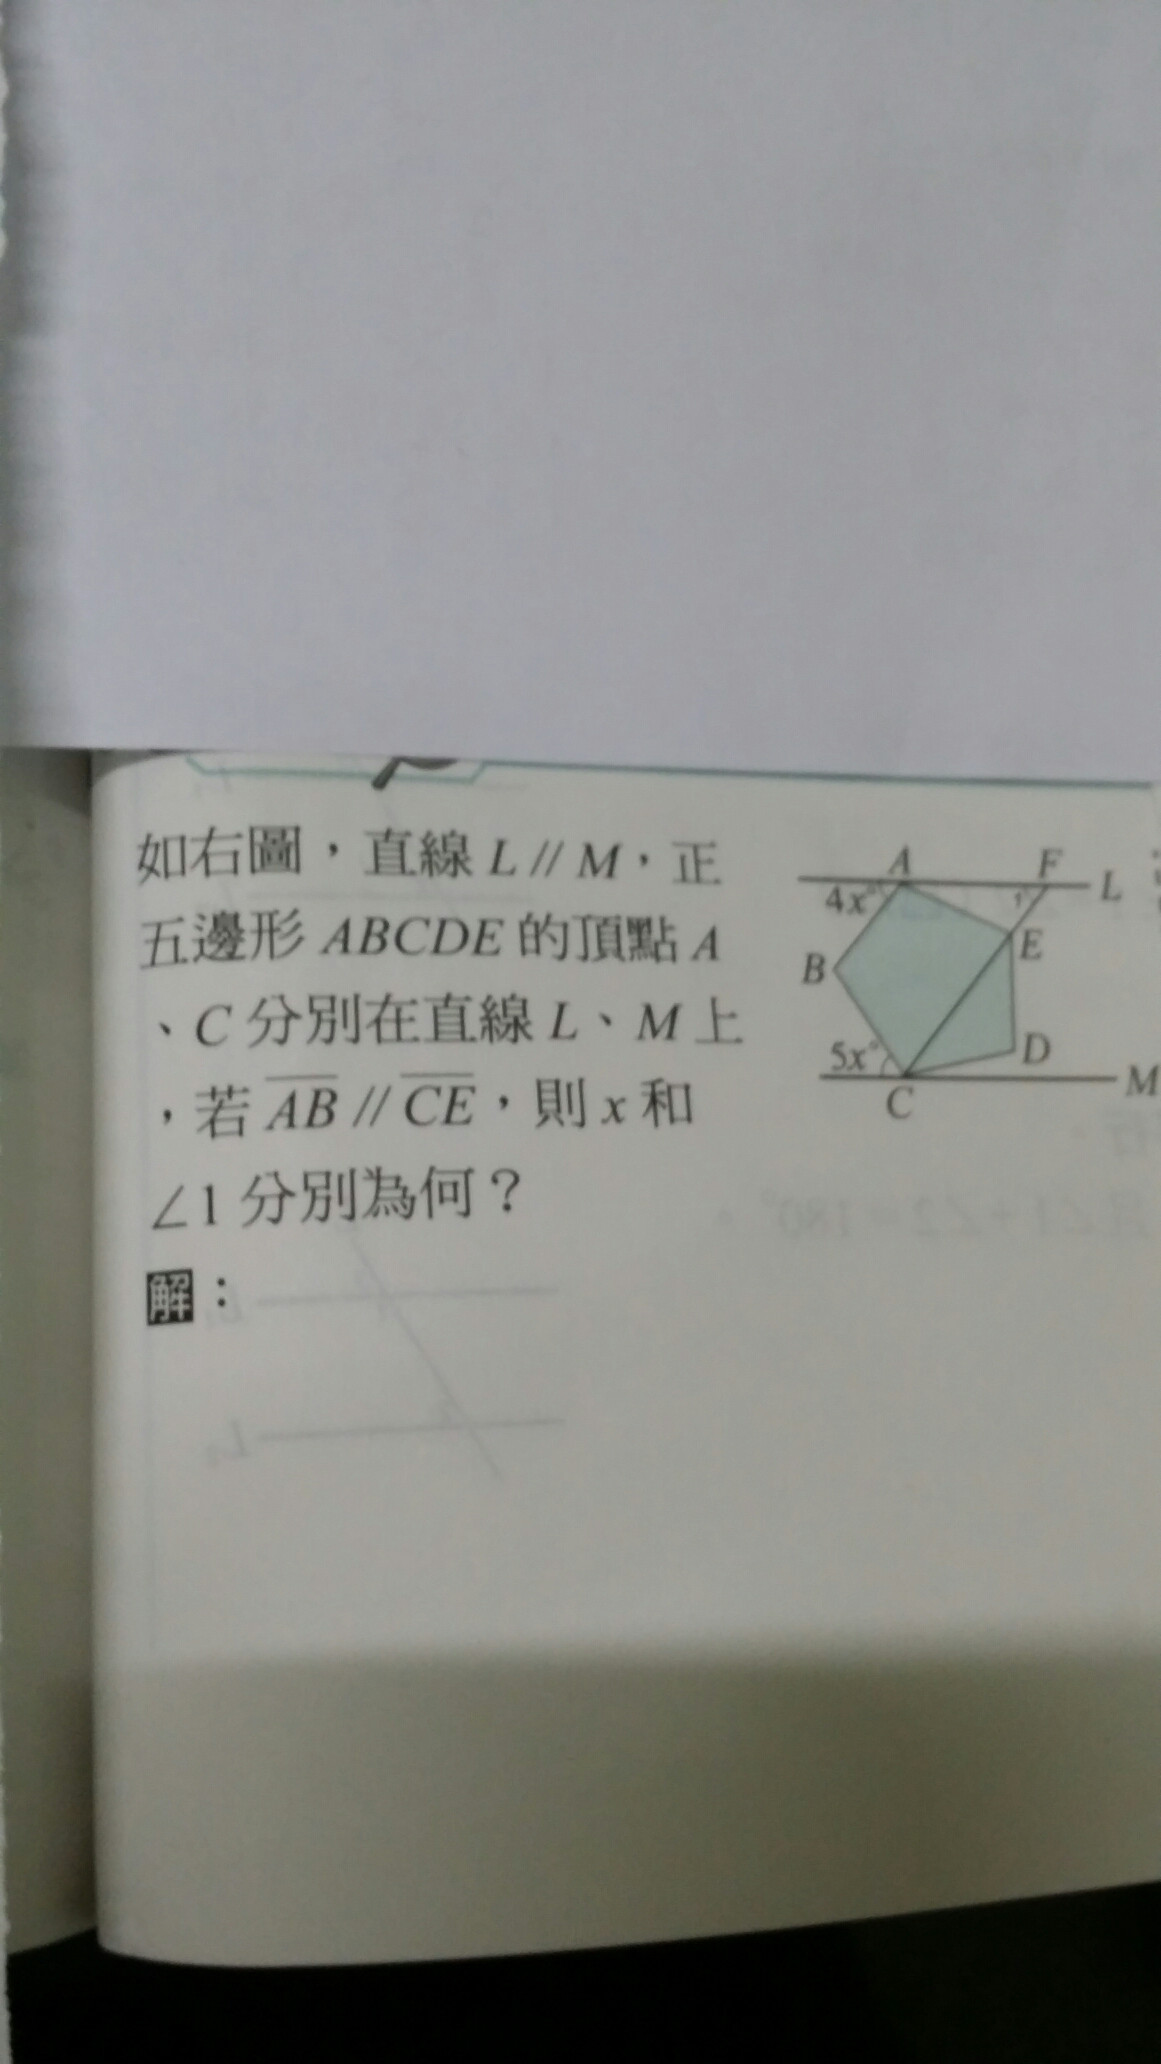 如右圖，直線 L // M，正
五邊形 ABCDE 的頂點 A
、C 分別在直線 L、M 上
，若 AB // CE，則 x 和
∠1 分別為何？
解：
A
F
L
4x°
1
E
B
5x°
D
C
M